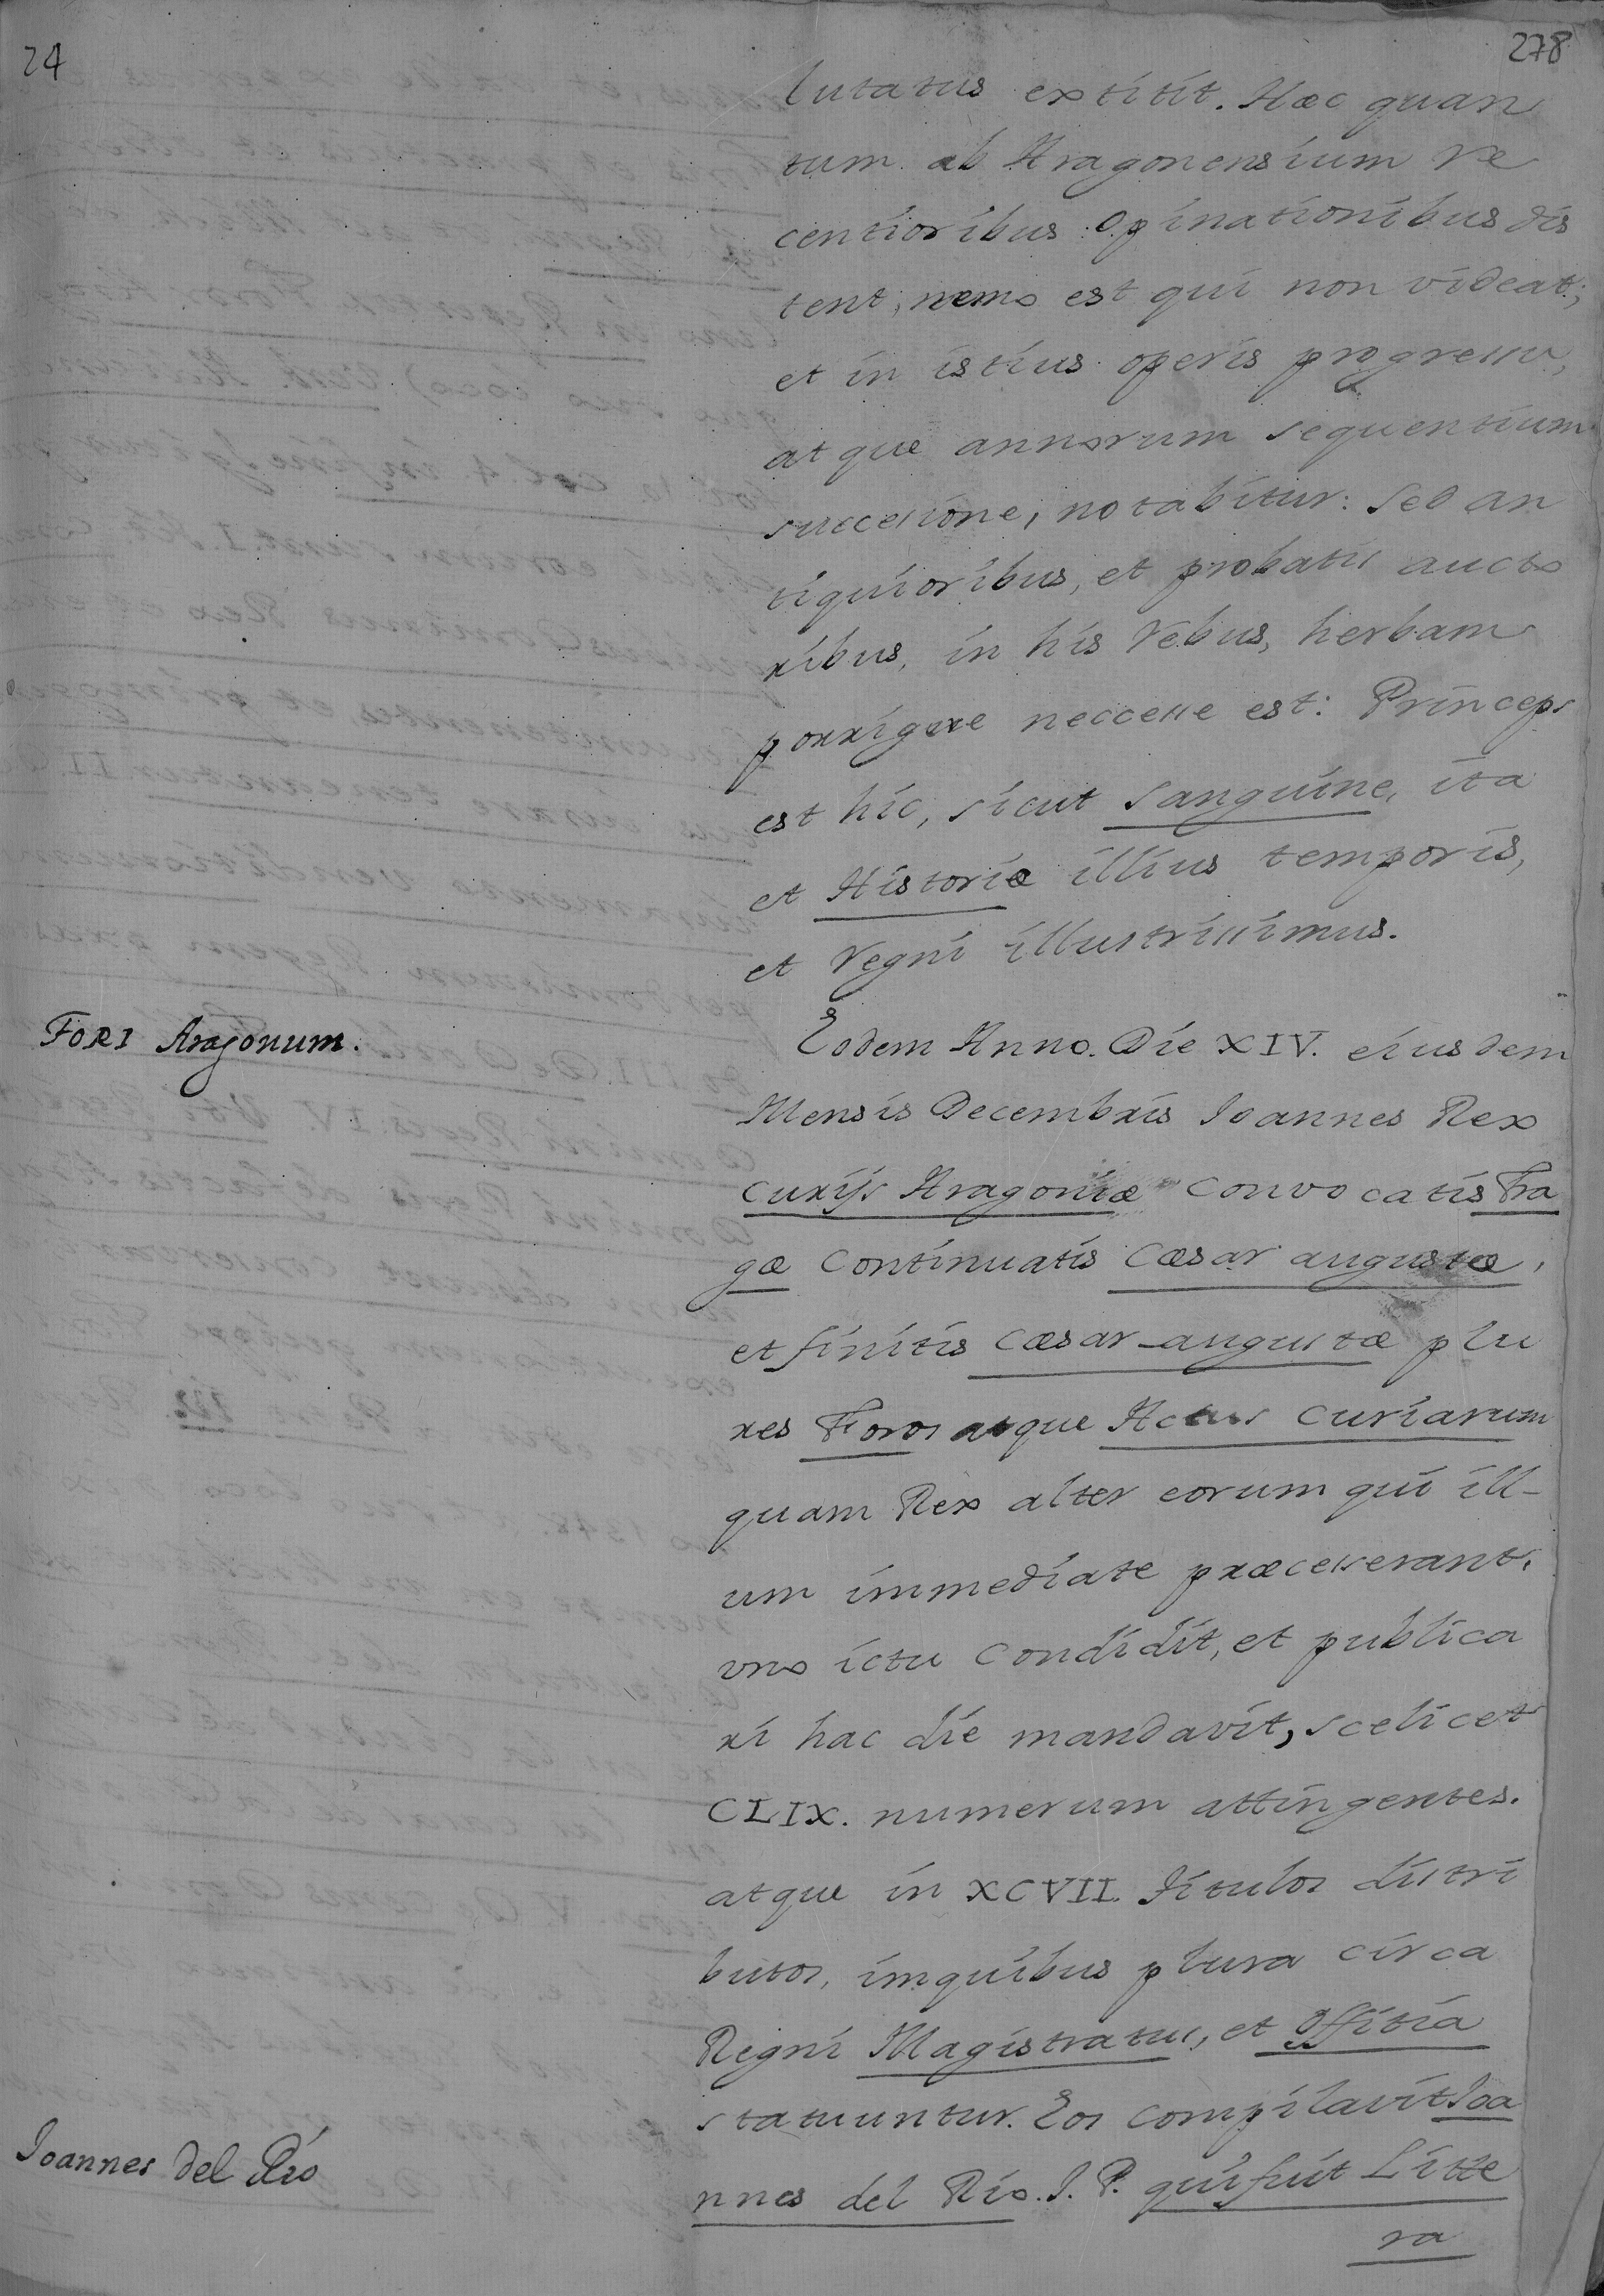 24
278
lutatus extitit. Hæc quan
tum ab Aragonensium re
centioribus opinationibus dis
tent, nemo est qui non videat;
et in istius operis progressu,
atque annorum sequentium
successione, notabitur: sed an
tiquioribus, et probatis aucto
ribus, in his rebus, herbam
porrigere neccesse est: Princeps
est hic, sicut sanguine, ita
et Historiæ illius temporis,
et regni illustrissimus.
FORI Aragonum.
Eodem Anno. Die XIV. eiusdem
Mensis Decembris Ioannes Rex
curijs Aragoniæ convocatis Fra
gæ continuatis Cæsar augustæ,
et finitis Cæsar-augustæ plu
res Foros atque Actus Curiarum
quam Rex alter eorum qui ill-
um immediate præcesserant,
uno ictu condidit, et publica
ri hac die mandavit, scelicet
CLIX. numerum attingentes.
atque in XCVII. Titulos distri
butos, imquibus plura circa
Regni Magistratus, et Offitia
statuuntur. Eos compilavit Ioa
Ioannes del Río
nnes del Rio. I. P. qui fuit Litte
ra